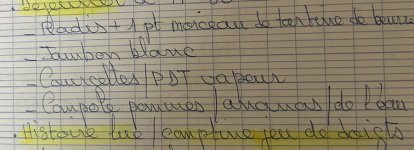 . Déjeuner à 11
- Radis + 1 pt morceau de tartine de beurre
- Jambon blanc
- Courgettes / PDT vapeur
- Compote pommes / ananas / de l'eau
. Histoire lue / comptine jeu de doigts